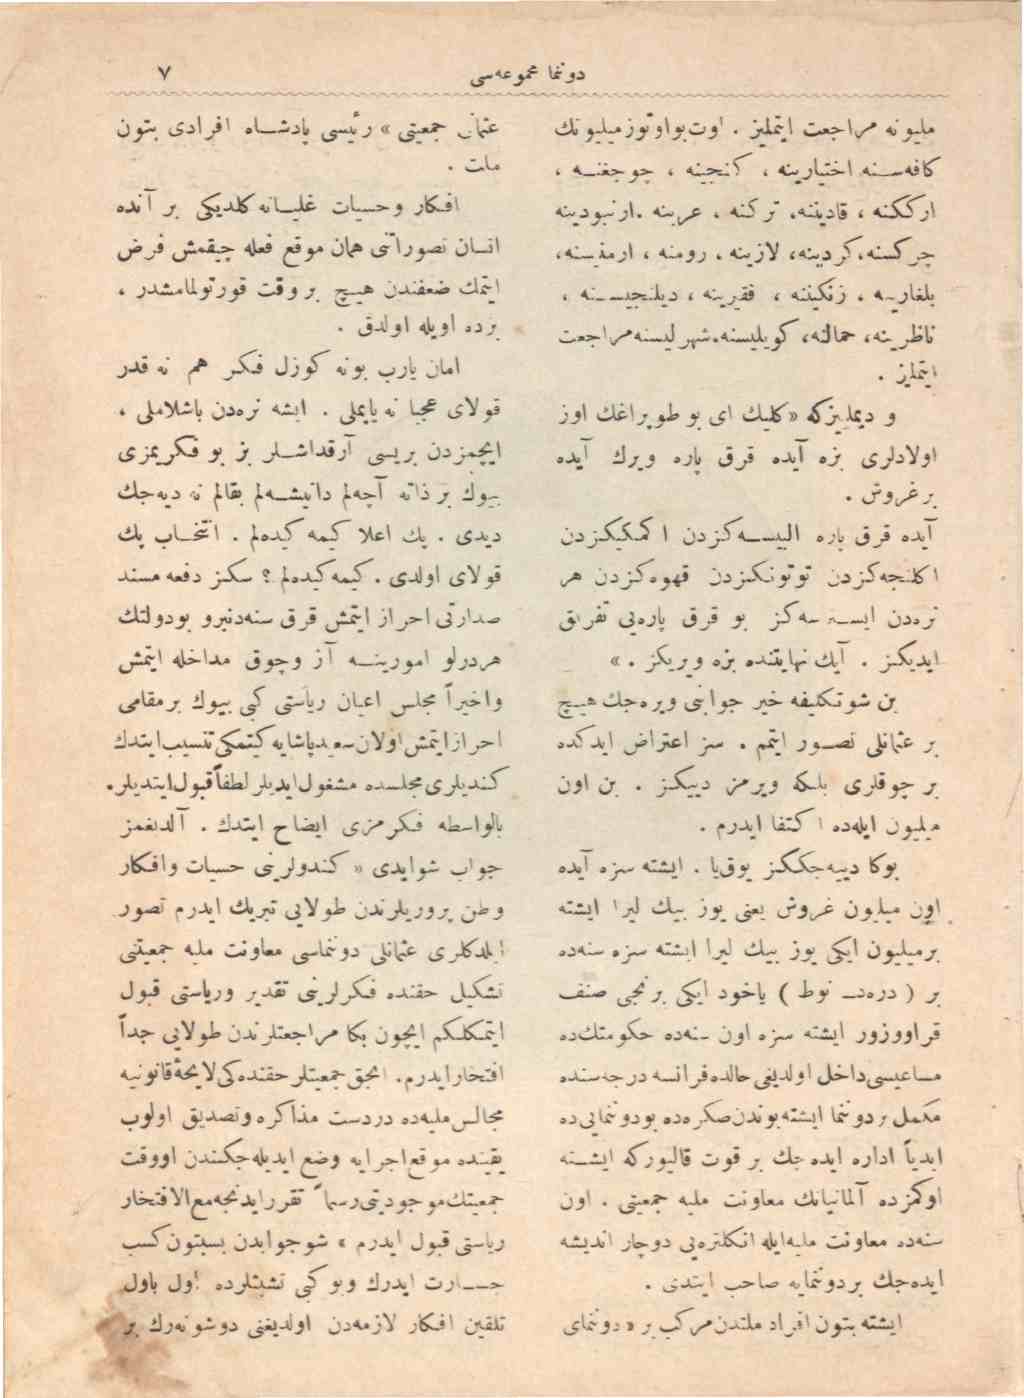 دوننما مجموعه‌سی
٧
ملیونه مراجعت ایتملیز . اوت بو اوتوز میلیونك
كافه‌سنه اختیارینه ، كنجینه ، چوجغنه ،
ارككنه ، قادیننه، تركنه ، عربنه .ارنبودینه
چركسنه،كردینه، لازینه ، رومنه ، ارمنیسنه،
بلغارینه ، زنكیننه ، فقیرینه ، دیلنجیسنه ،
ناظرینه، حمالنه، كویلیسنه،شهرلیسنه مراجعت
ایتملیز .
و دیملیزكه «كلیك ای بو طوپراغك اوز
اولادلری بزه آیده قرق پاره ویرك آیده
بر غروش .
آیده قرق پاره البیسه‌كزدن اكمكیكزدن
اكلنجه‌كزدن توتونكزدن قهوه‌كزدن هر
نره‌دن ایسترسه‌كز بو قرق پاره‌یی تفریق
ایدیكز . آیك نهایتنده بزه ویریكز . »
بن شو تكلیفه خیر جوابنی ویره‌جك هیچ
بر عثمانلی تصور ایتمم . سز اعتراض ایدكده
بر چوقلری بلكه ویرمز دییكز . بن اون
میلیون ایله‌ده اكتفا ایدرم .
بوكا دییه‌جككز یوق‌یا . ایشته سزه آیده
اون میلیون غروش یعنی یوز بیك لیرا ایشته
برمیلیون ایكی یوز بیك لیرا ایشته سزه سنه‌ده
بر ( دره‌دـ نوط ) یاخود ایكی برنجی صنف
قراووزور ایشته سزه اون سنه‌ده حكومتك‌ده
مساعیسی داخل اولدیغی حالده فرانسه درجه‌سنده
مكمل بر دوننما ایشته بوندن صكره‌ده بو دوننمایی ده
ابدیاً اداره ایده‌جك بر قوت قالیوركه ایشته
اوكمزده آلمانیانك معاونت ملیه جمعیتی . اون
سنه‌ده معاونت ملیه‌ایله انكلتره‌یی دوچار اندیشه
ایده‌جك بر دوننمایه صاحب ایتدی .
ایشته بتون افراد ملتدن مركب بر « دوننمای
عثمانی جمعیتی » رئیسی پادشاه افرادی بتون
ملت .
افكار وحسیات غلیانه كلدیكی بر آنده
انسان تصوراتنی همان موقع فعله چیقمش فرض
ایتمك ضعفندن هیچ بر وقت قورتولمامشدر .
بزده اویله اولدق .
امان یارب بو نه كوزل فكر هم نه قدر
قولای عجبا نه یاپملی . ایشه نره‌دن باشلاملی ،
ایچمزدن بریسی آرقداشلر بز بو فكریمزی
بیوك بر ذاته آچه‌لم دانیشه‌لم بقالم نه دیه‌جك
دیدی . پك اعلا كیمه كیده‌لم . انتخاب پك
قولای اولدی . كیمه كیده‌لم ؟ سكز دفعه مسند
صدارتی احراز ایتمش قرق سنه‌دنبرو بودولتك
هردرلو امورینه آز وچوق مداخله ایتمش
واخیراً مجلس اعیان ریاستی كبی بیوك بر مقامی
احراز ایتمش اولان سعید پاشایه كیتمكی تنسیب ایتدك
كندیلری مجلسده مشغول ایدیلر لطفاً قبول ایتدیلر.
بالواسطه فكرمزی ایضاح ایتدك . آلدیغمز
جواب شوایدی « كندولرینی حسیات وافكار
وطن پروریلرندن طولایی تبریك ایدرم تصور
ایلدكلری عثمانلی دوننماسی معاونت ملیه جمعیتنی
تشكیل حقنده فكرلرینی تقدیر وریاستی قبول
ایتمكلكم ایچون بكا مراجعتلرندن طولایی جداً
افتخار ایدرم. انجق جمعیتلر حقنده‌كی لایحهٔ قانونیه
مجالس ملیه‌ده دردست مذاكره وتصدیق اولوب
یقینده موقع اجرایه وضع ایدیله‌جكندن اووقت
جمعیتك موجودیتی رسماً تقرر ایدنجه مع‌الافتخار
ریاستی قبول ایدرم » شو جوابدن بسبتون كسب
جسارت ایدرك وبو كبی تشبثلرده اول باول
تلقین افكار لازمه‌دن اولدیغنی دوشونه‌رك بر